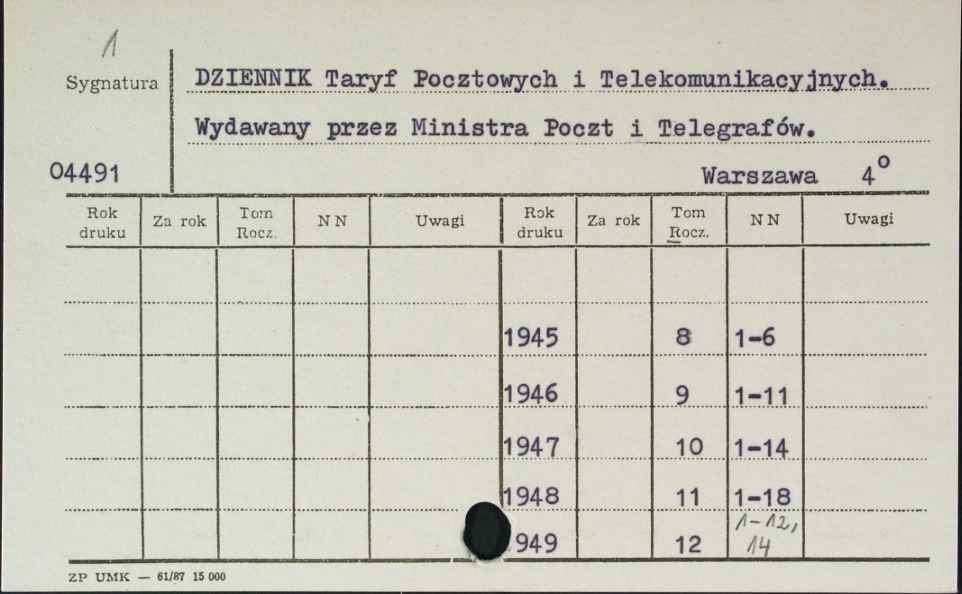 1
Sygnatura
DZIENNIK Taryf Pocztowych i Telekomunikacyjnych.
Wydawany przez Ministra Poczt i Telegrafów.
04491
Warszawa 4°
Rok druku Za rok Tom Rocz. NN Uwagi Rok druku Za rok Tom Rocz. NN Uwagi
1945 8 1-6
1946 9 1-11
1947 10 1-14
1948 11 1-18
949 12 1-12, 14
ZP UMK — 61/87 15 000